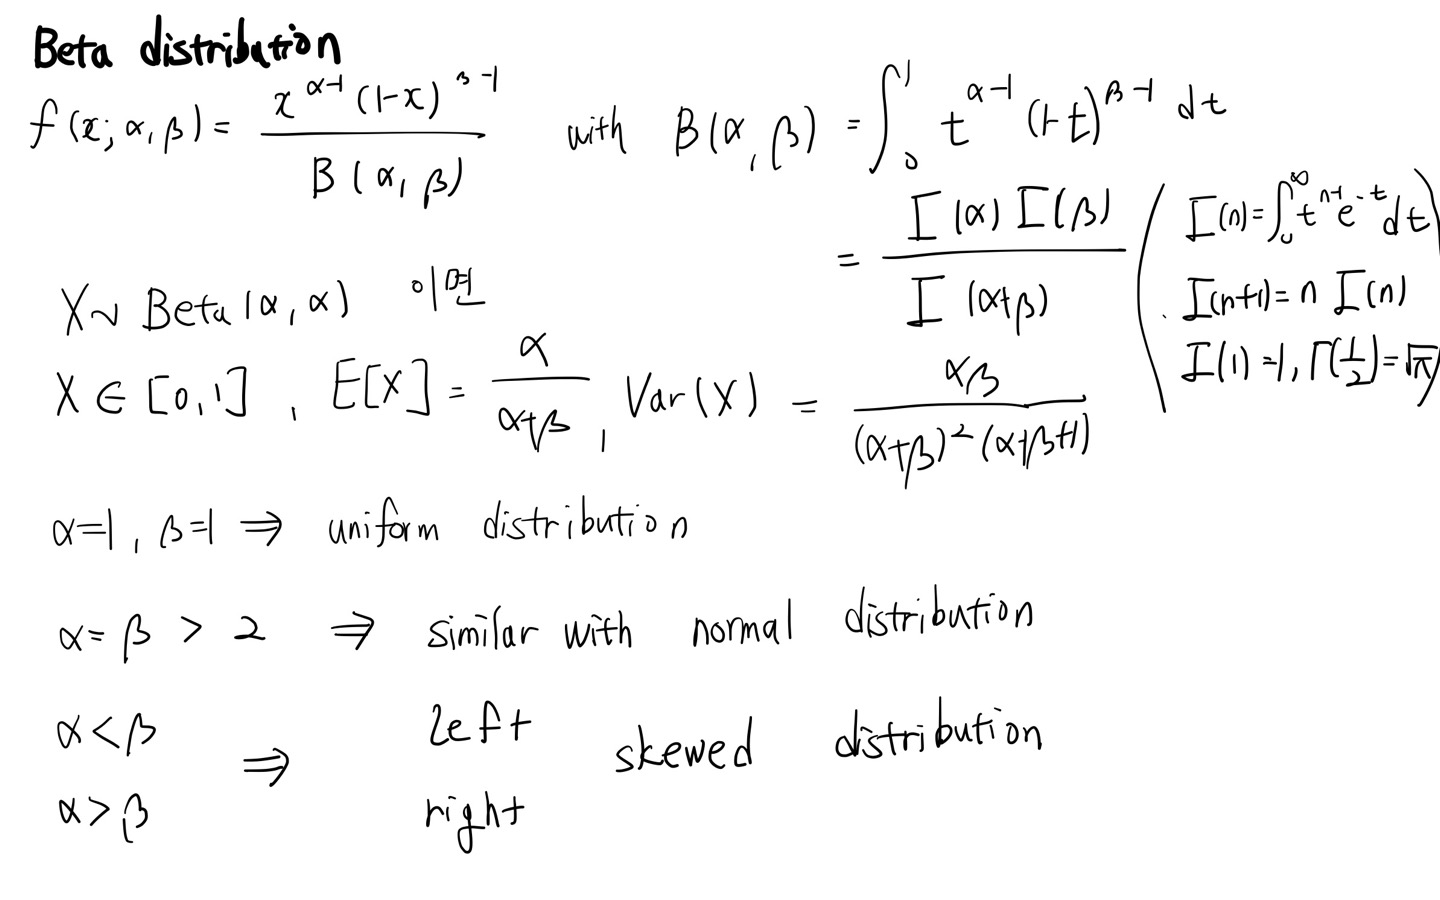 Beta distribution
f(x; α, β) = x^(α-1) (1-x)^(β-1) / B(α, β) with B(α, β) = ∫_0^1 t^(α-1) (1-t)^(β-1) dt
= Γ(α) Γ(β) / Γ(α+β) ( Γ(n) = ∫_0^∞ t^(n-1) e^(-t) dt
Γ(n+1) = n Γ(n)
Γ(1) = 1, Γ(1/2) = √π )
X ~ Beta(α, α) 이면
X ∈ [0, 1], E[X] = α / (α+β), Var(X) = αβ / ((α+β)^2 (α+β+1))
α=1, β=1 ⇒ uniform distribution
α = β > 2 ⇒ similar with normal distribution
α < β ⇒ left skewed distribution
α > β right